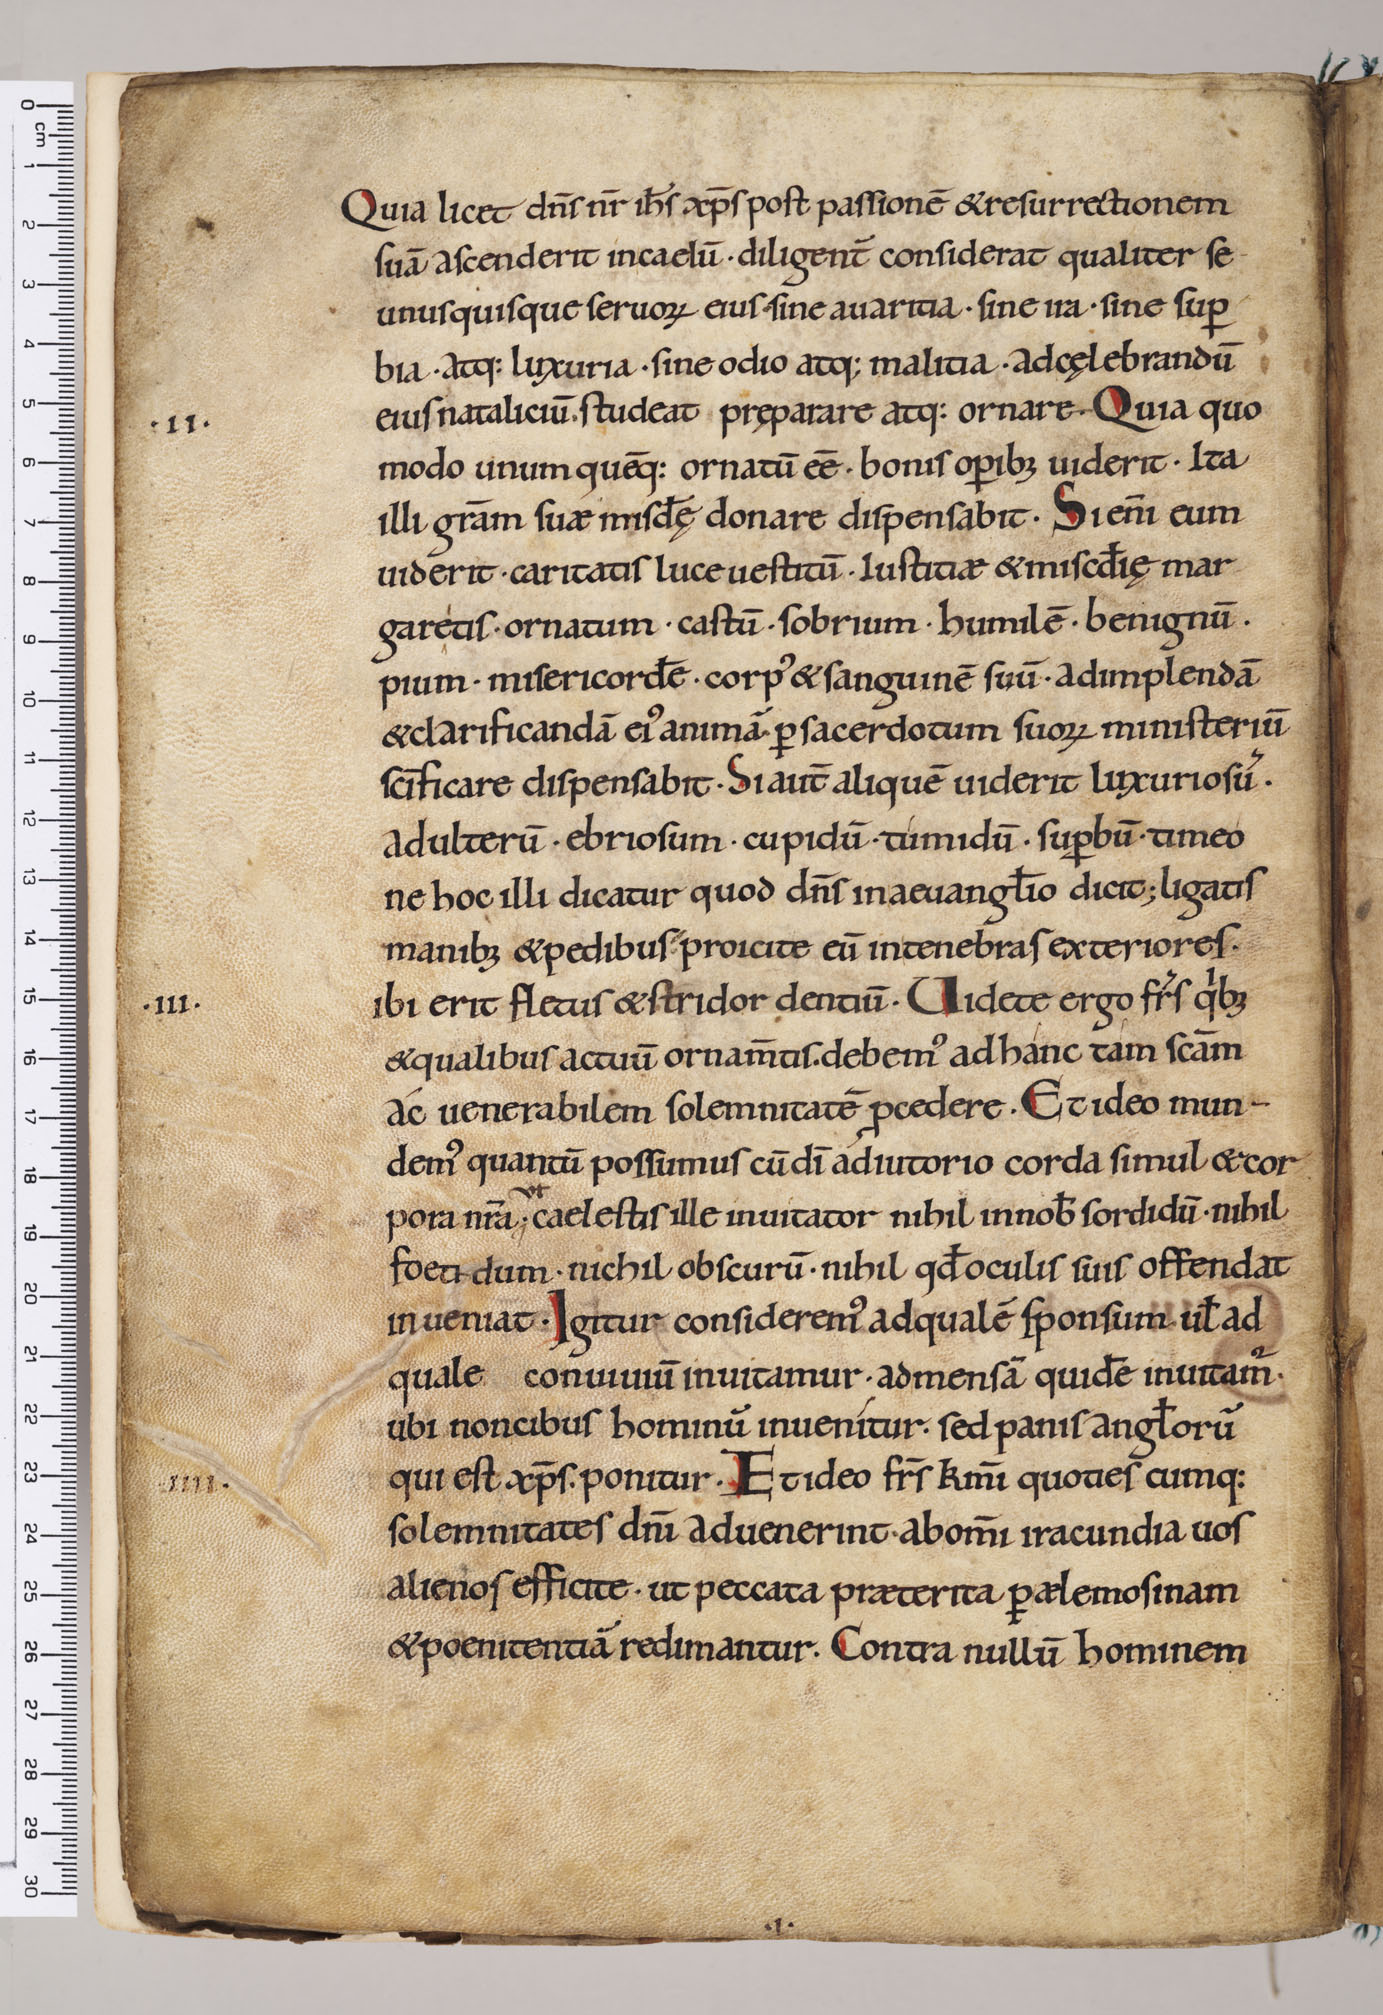 Quia licet dn̅s nr̅ ih̅s xp̅s post passionē & resurrectionem
suā ascenderit in caelū · diligent̅ considerat qualiter se
unusquisque seruoꝝ eius · sine auaritia · sine ira · sine suꝑ
bia · atq: luxuria · sine odio atq; malitia · ad cęlebrandū
·II· eius nataliciū · studeat pręparare atq: ornare · Quia quo
modo unumquēq: ornatū eē · bonis oꝑibꝫ uiderit · Ita
illi gr̅am suae misdę̅ donare dispensabit · Si eni̅ eum
uiderit · caritatis luce uestitū · Iustitiae & miscd̅ię mar
garetis · ornatum · castū · sobrium · humilē · benignū ·
pium · misericordē · corpꝰ & sanguinē suū · ad implendā
& clarificandā eiꝰ animā · ꝑ sacerdotum suoꝝ ministeriū
sc̅ificare dispensabit · Si aut̅ aliquē uiderit luxuriosū ·
adulterū · ebriosum · cupidū · tumidū · suꝑbū · timeo
ne hoc illi dicatur quod dn̅s in aeuangl̅io dicit; ligatis
manibꝫ & pedibus · proicite eū in tenebras exteriores ·
·III· ibi erit fletus & stridor dentiū · Uidete ergo fr̅s qͥbꝫ
& qualibus actuū ornam̅tis · debemꝰ ad hanc tam sc̅am
ac uenerabilem solemnitatē ꝓcedere · Et ideo mun-
demꝰ quantū possumus cū di̅ adiutorio corda simul & cor
pora nr̅a; ut caelestis ille inuitator nihil in nob̅ sordidū · nihil
foetidum · nichil obscurū · nihil qd̅ oculis suis offendat
inueniat · Igitur consideremꝰ ad qualē sponsum ul̅ ad
quale conuiuiū inuitamur · ad mensā quidē inuitam᷑ ·
ubi non cibus hominū inuenitur · sed panis angl̅orū
·IIII· qui est xp̅s · ponitur · Et ideo fr̅s km̅i quotiescumq:
solemnitates dn̅i aduenerint · ab om̅i iracundia uos
alienos efficite · ut peccata praeterita ꝑ aelemosinam
& poenitentiā redimantur · Contra nullū hominem
·I·
0 cm 1 2 3 4 5 6 7 8 9 10 11 12 13 14 15 16 17 18 19 20 21 22 23 24 25 26 27 28 29 30